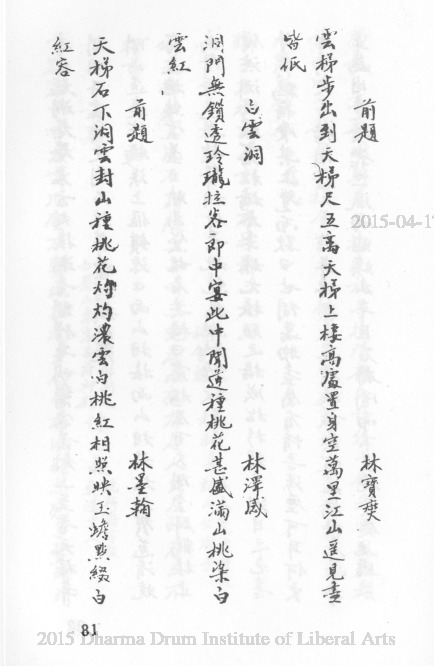 前題 林寶
雲梯步出到天梯尺五高天梯上樓高處置身空萬里江山遥見
皆低
白雲洞 林澤盛
洞門無鎖透玲瓏拉客一即中宴此中聞道種桃花甚盛滿山桃染白
雲紅
前題 林墨翰
天梯石下洞雲封山種桃花灼灼濃雲白桃紅相照映玉蟾點綴白
紅容
81
2015-04-1
2015 Dharma Drum Institute of Liberal Arts